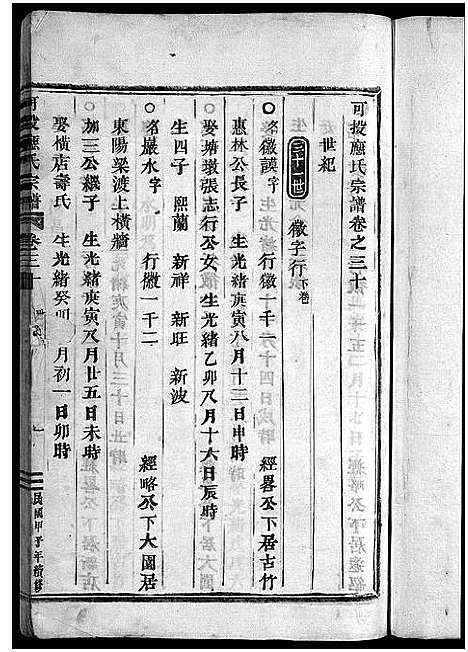 可投應氏宗譜卷之三十
世紀
三十一世 徽字行下卷
○名徽謨字 行徽一千六十四 經畧公下居古竹
惠林公長子 生光緒庚寅八月十三日申時
娶塘墩張志行公女 生光緒乙卯八月十六日辰時
生四子 熙蘭 新祥 新旺 新波
○名嚴水字 行徽一千二 經略公下大園居
東陽梁渡上橫牆
○加三公繼子 生光緒庚寅八月廿五日未時
娶橫店壽氏 生光緒癸卯 月初一日卯時
可投應氏宗譜 卷三十 民國甲子年續修